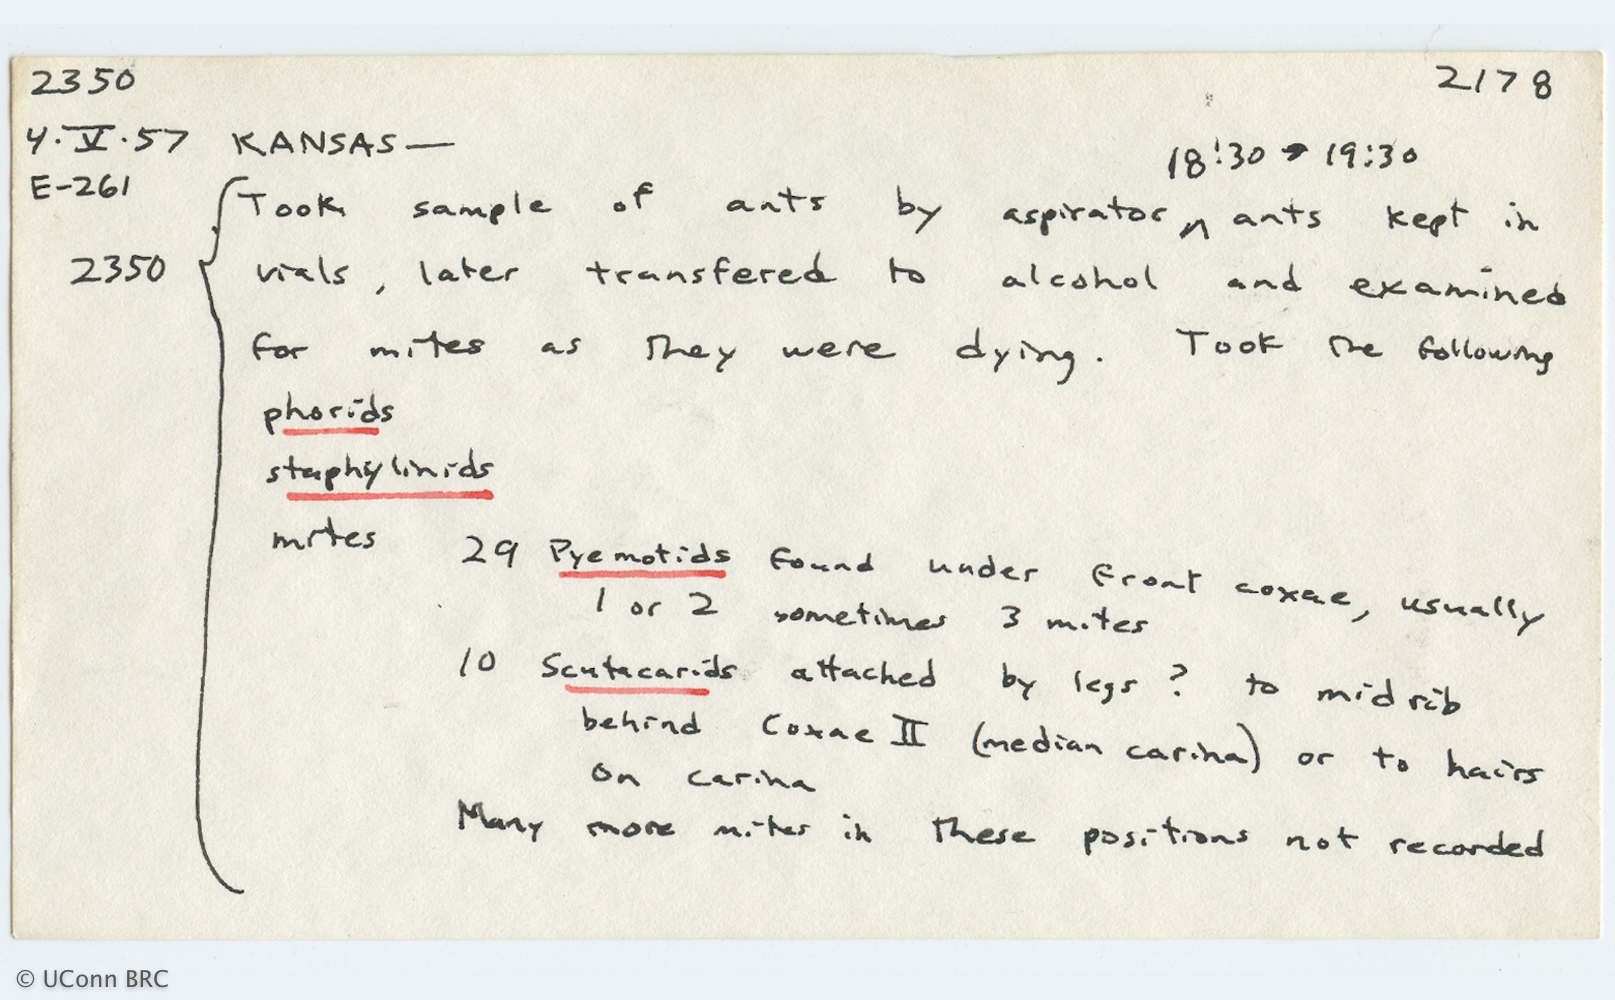 2350 2178
4·V·57 KANSAS—
18:30 → 19:30
E-261
Took sample of ants by aspirator ^ ants kept in
2350
vials, later transfered to alcohol and examined
for mites as they were dying. Took the following
phorids
staphylinids
mites
29 Pyemotids found under front coxae, usually
1 or 2 sometimes 3 mites
10 Scutacarids attached by legs ? to mid rib
behind Coxae II (median carina) or to hairs
on carina
Many more mites in these positions not recorded
© UConn BRC